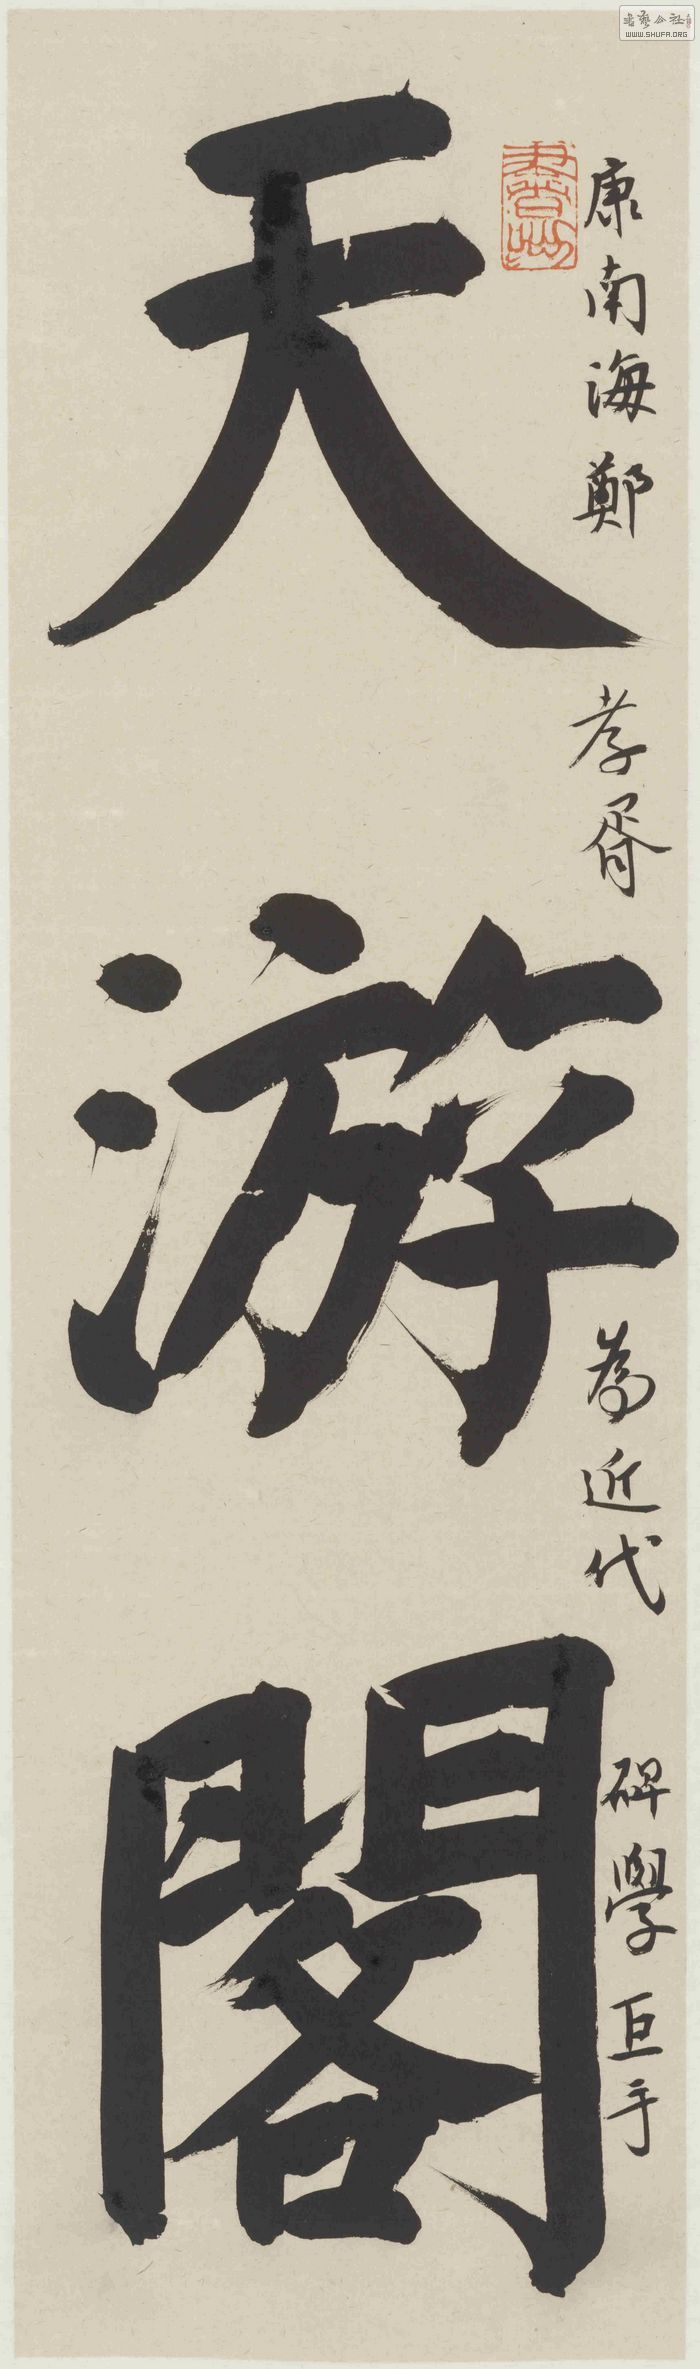 天游閣
康南海鄭孝胥為近代碑學巨手
書藝公社
WWW.SHUFA.ORG